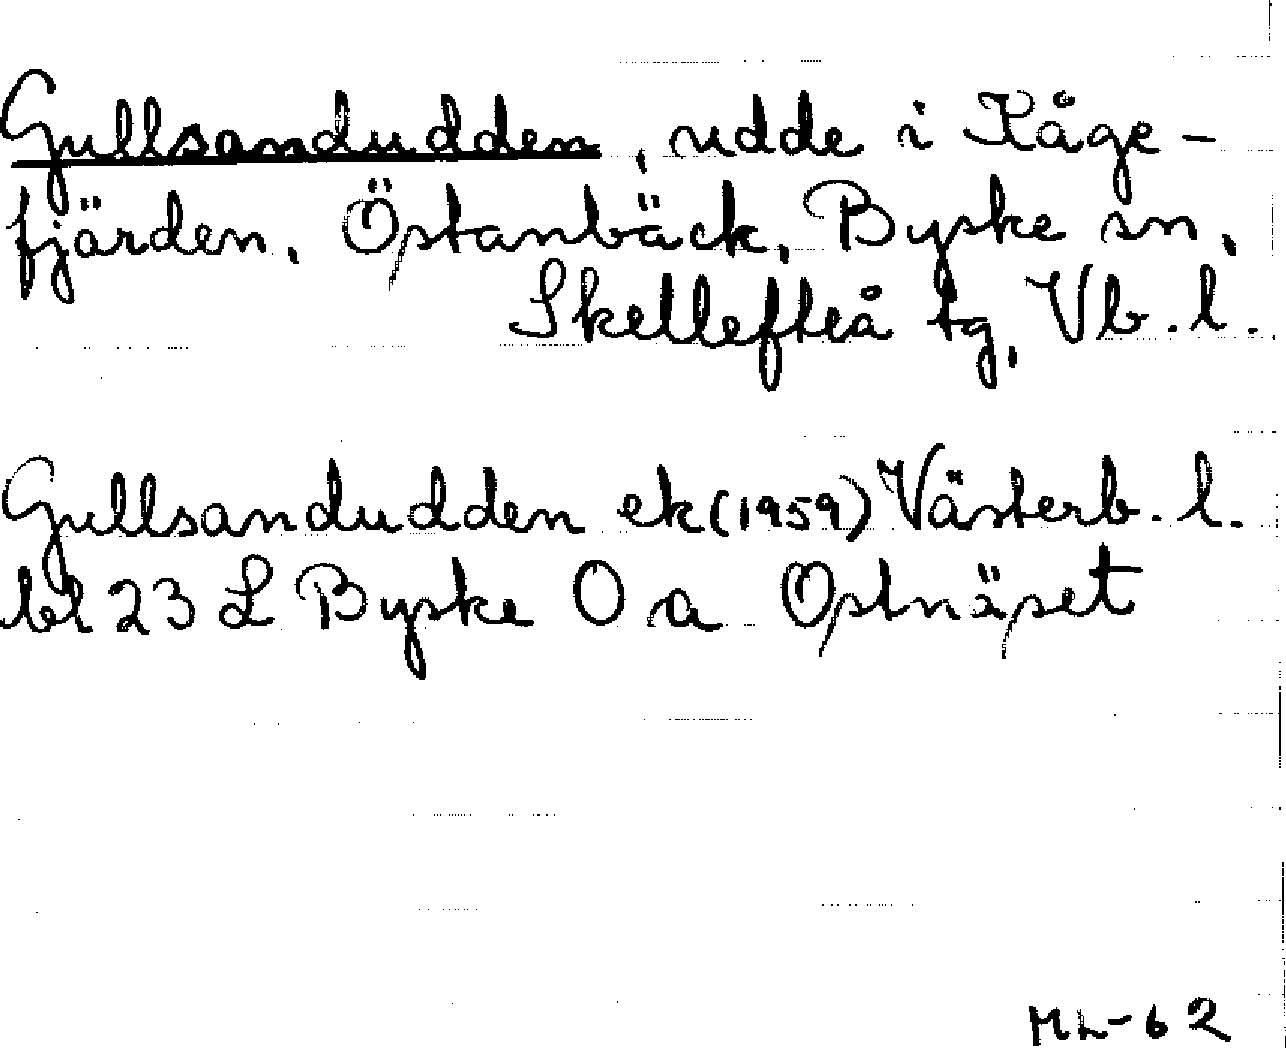 Gullsandudden, udde i Kåge-
fjärden, Östanbäck, Byske sn,
Skellefteå tg, Vb. l.
Gullsandudden ek (1959) Västerb. l.
bl 23 L Byske O a Ostnäset
ML-62